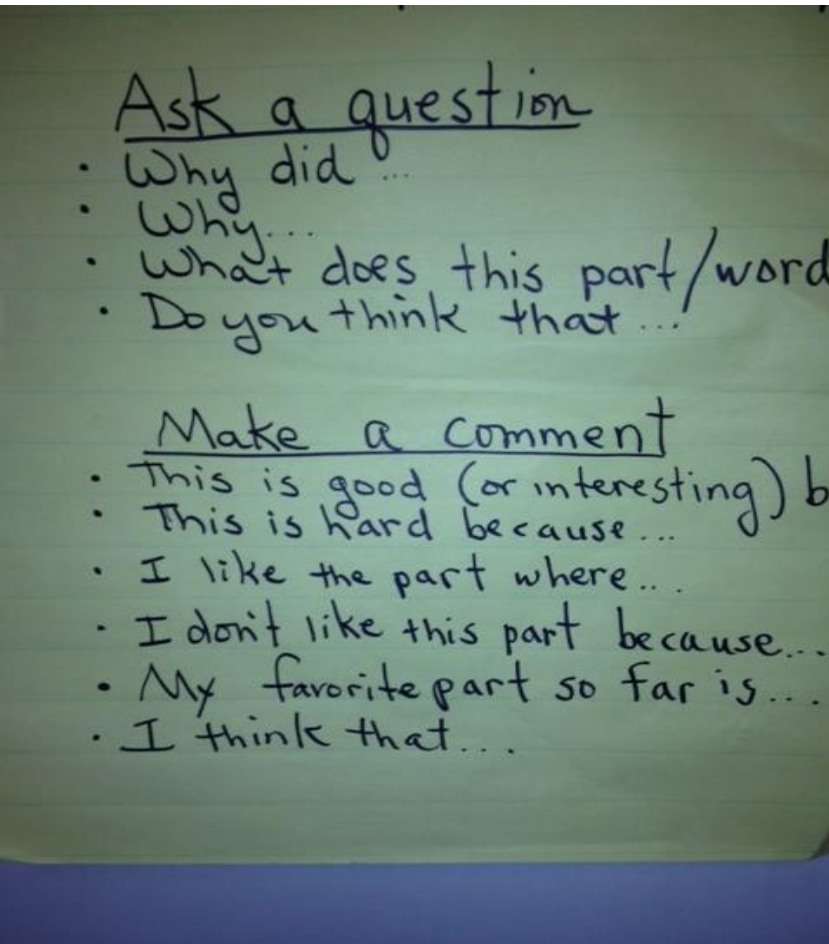 Ask a question
· Why did ...
· Why...
· What does this part/word
· Do you think that ...
Make a comment
· This is good (or interesting) b
· This is hard because...
· I like the part where...
· I don't like this part because...
· My favorite part so far is...
· I think that...